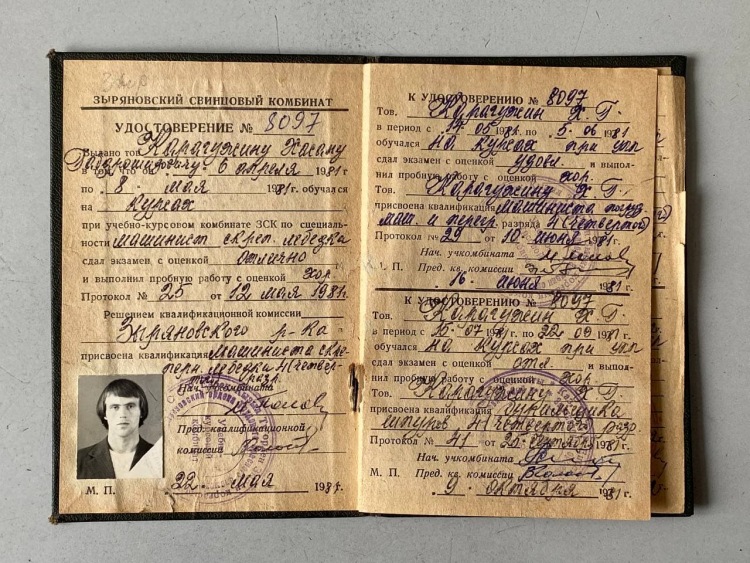 ЗЫРЯНОВСКИЙ СВИНЦОВЫЙ КОМБИНАТ
УДОСТОВЕРЕНИЕ № 8097
Выдано тов. Карагужину Хасану
в том, что он 6 апреля 1981 г
по 8 мая 1981 г. обучался
на курсах
при учебно-курсовом комбинате ЗСК по специаль-
ности машинист скреп. лебедка
сдал экзамен с оценкой отлично
и выполнил пробную работу с оценкой хор.
Протокол № 25 от 12 мая 1981 г.
Решением квалификационной комиссии
Зыряновского р-ка
присвоена квалификация машиниста скре-
перн. лебедки 4 (четвер-
той) разр.
Нач. учкомбината
Пред. квалификационной
комиссии
М. П. 22 мая 1981 г.
К УДОСТОВЕРЕНИЮ № 8097
Тов. Карагужин Х. Г.
в период с 14. 05 1981 г. по 5. 06 1981
обучался на курсах при укп
сдал экзамен с оценкой удовл и выпол-
нил пробную работу с оценкой хор.
Тов. Карагужину Х. Г.
присвоена квалификация машиниста погруз
маш. и перегр. разряда 4 (четвертого)
Протокол № 29 от 10 июня 1981 г.
Нач. учкомбината
М. П. Пред. кв. комиссии
16 июня 1981 г.
К УДОСТОВЕРЕНИЮ № 8097
Тов. Карагужин Х. Г.
в период с 15. 07 1981 г. по 22. 09 1981 г.
обучался на курсах при укп
сдал экзамен с оценкой отл. и выпол-
нил пробную работу с оценкой хор.
Тов. Карагужину Х. Г.
присвоена квалификация бурильщика
шпуров 4 (четвертого) разр.
Протокол № 41 от 22 сентября 1981 г.
Нач. учкомбината
М. П. Пред. кв. комиссии
9 октября 1981 г.